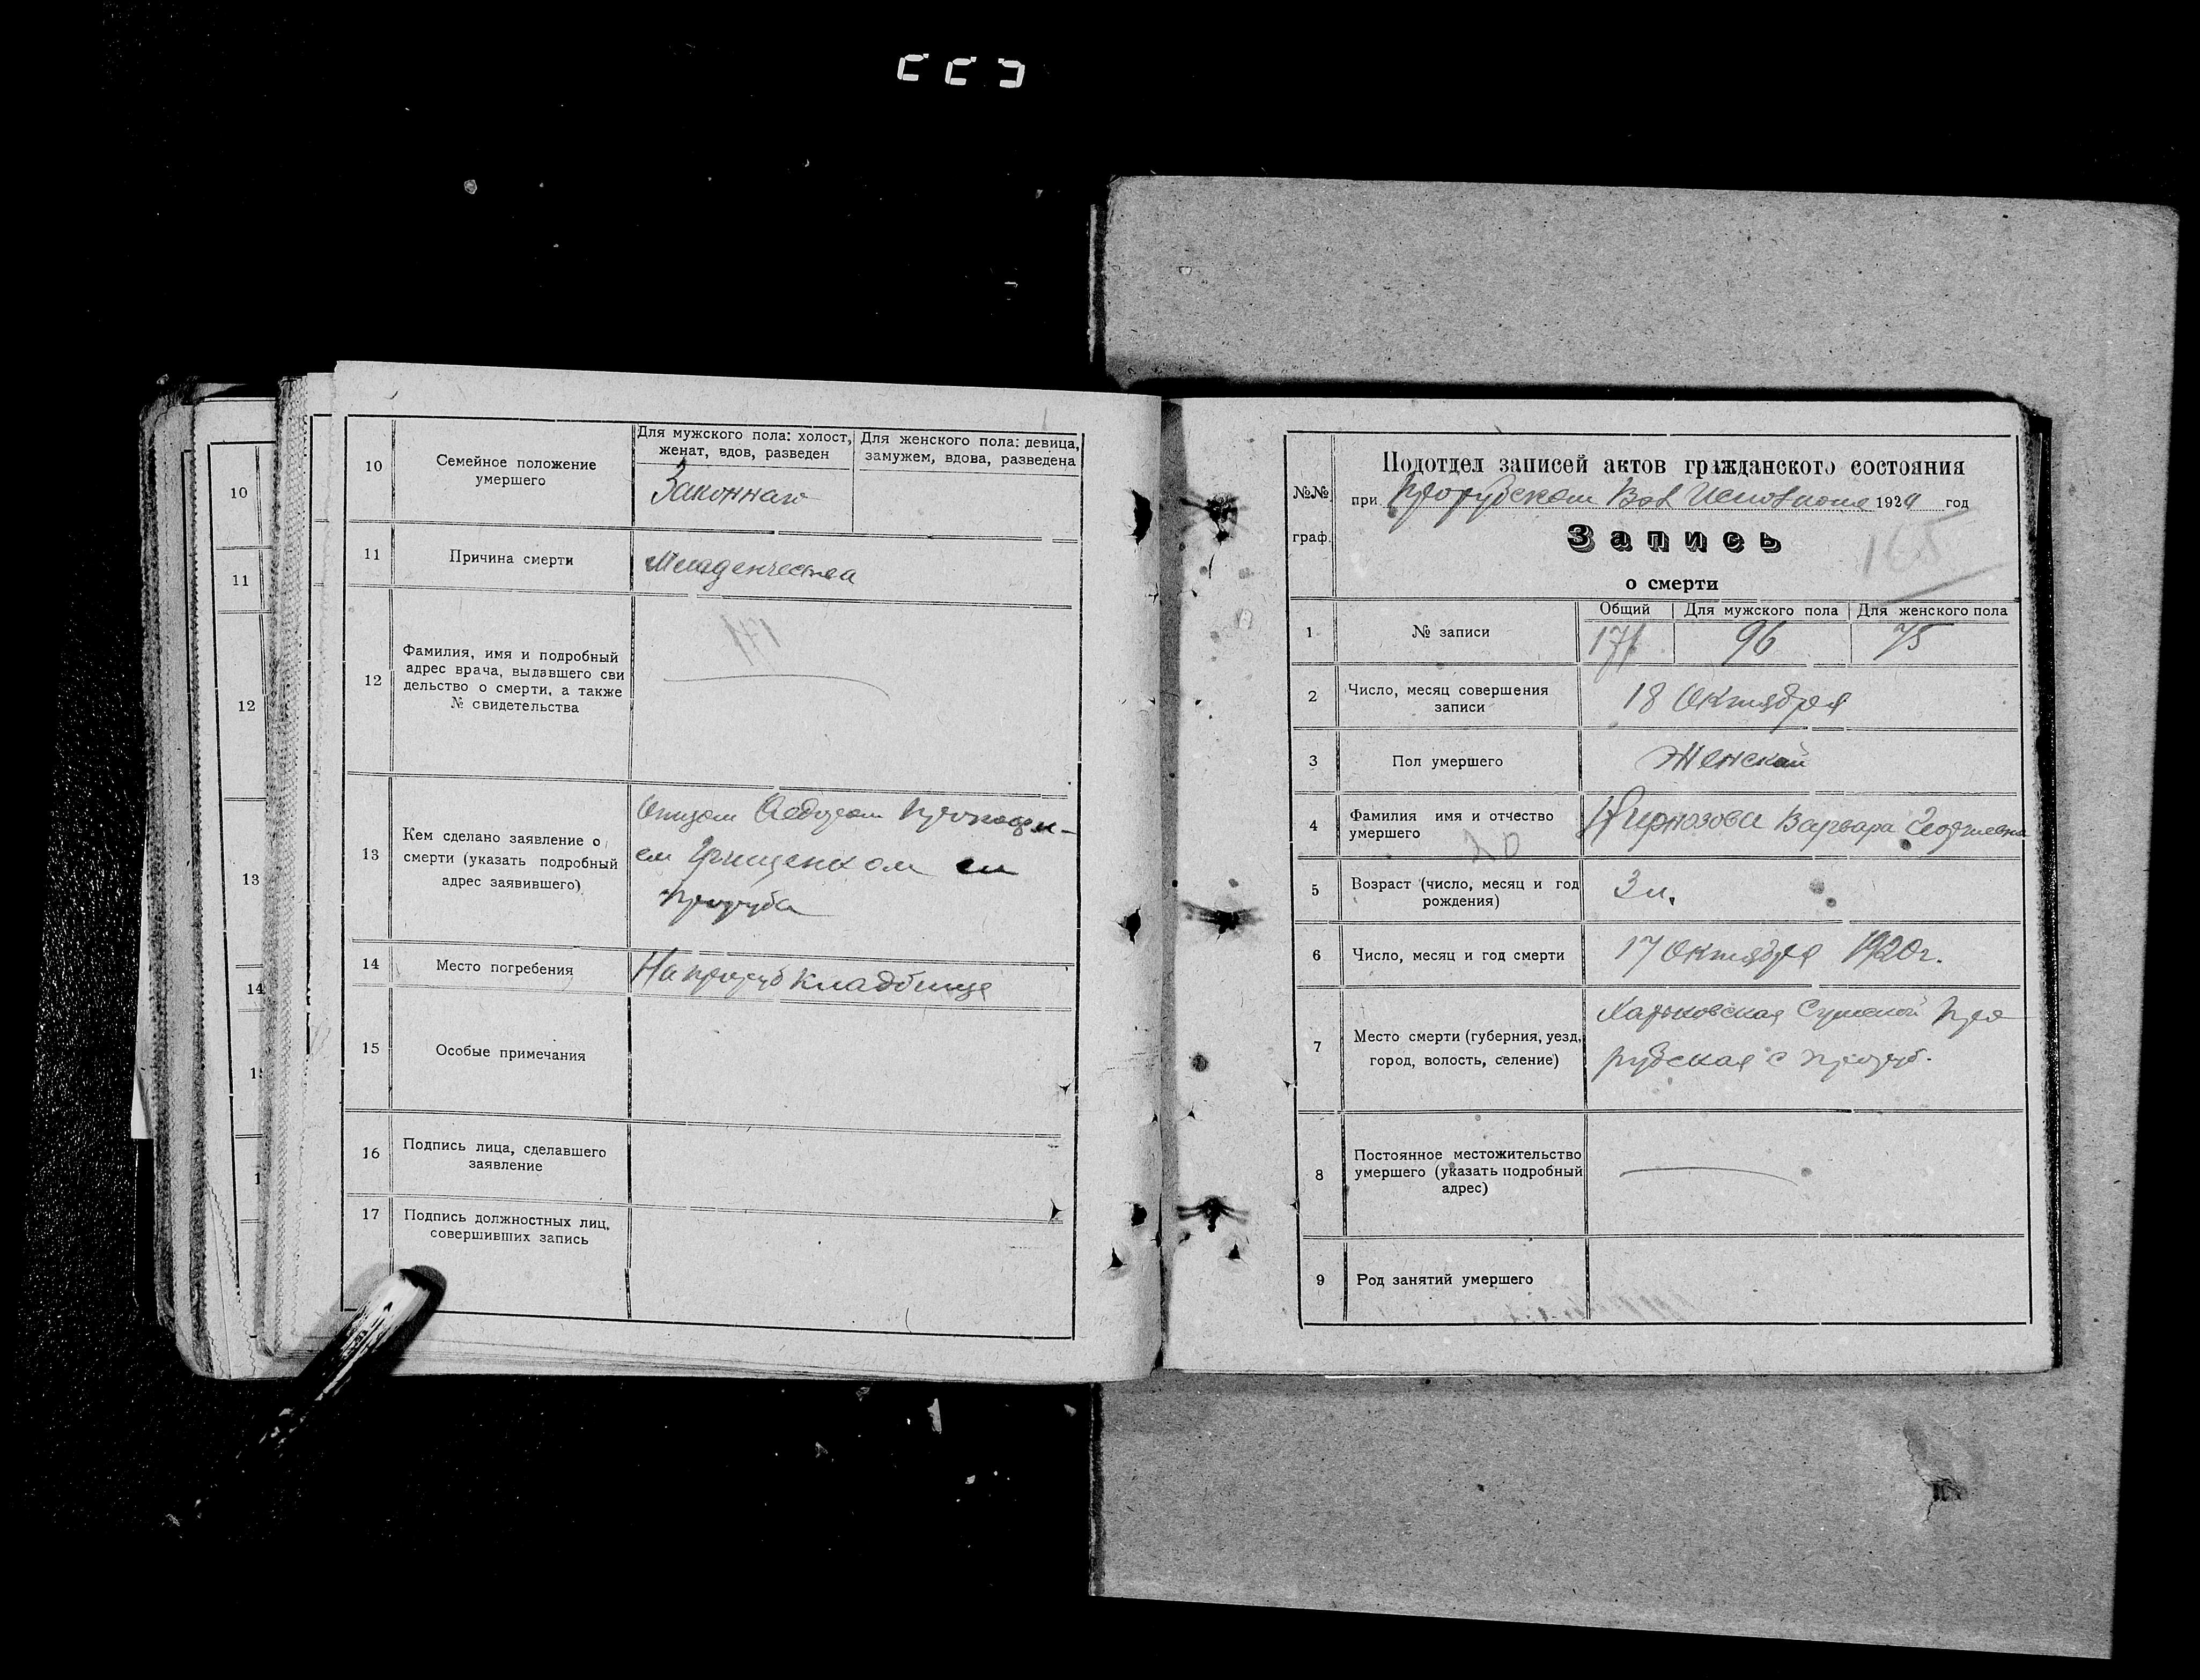 10
11
12
13
14
10
Семейное положение
умершего
Для мужского пола: холост,
женат, вдов, разведен
Для женского пола: девица,
замужем, вдова, разведена
Законнаго
11
Причина смерти
Младенчества
12
Фамилия, имя и подробный
адрес врача, выдавшего сви
дельство о смерти, а также
№ свидетельства
171
13
Кем сделано заявление о
смерти (указать подробный
адрес заявившего)
Отцом
14
Место погребения
На кладбище
15
Особые примечания
16
Подпись лица, сделавшего
заявление
17
Подпись должностных лиц,
совершивших запись
№№
граф.
Подотдел записей актов гражданского состояния
при Вол 192 год
Запись
165
о смерти
1
№ записи
Общий
Для мужского пола
Для женского пола
171
96
75
2
Число, месяц совершения
записи
18 Октября
3
Пол умершего
Женский
4
Фамилия имя и отчество
умершего
Варвара
20
5
Возраст (число, месяц и год
рождения)
3 м.
6
Число, месяц и год смерти
17 Октября 1920 г.
7
Место смерти (губерния, уезд,
город, волость, селение)
Харьковская Сумской Про
рубская с Проруб.
8
Постоянное местожительство
умершего (указать подробный
адрес)
9
Род занятий умершего